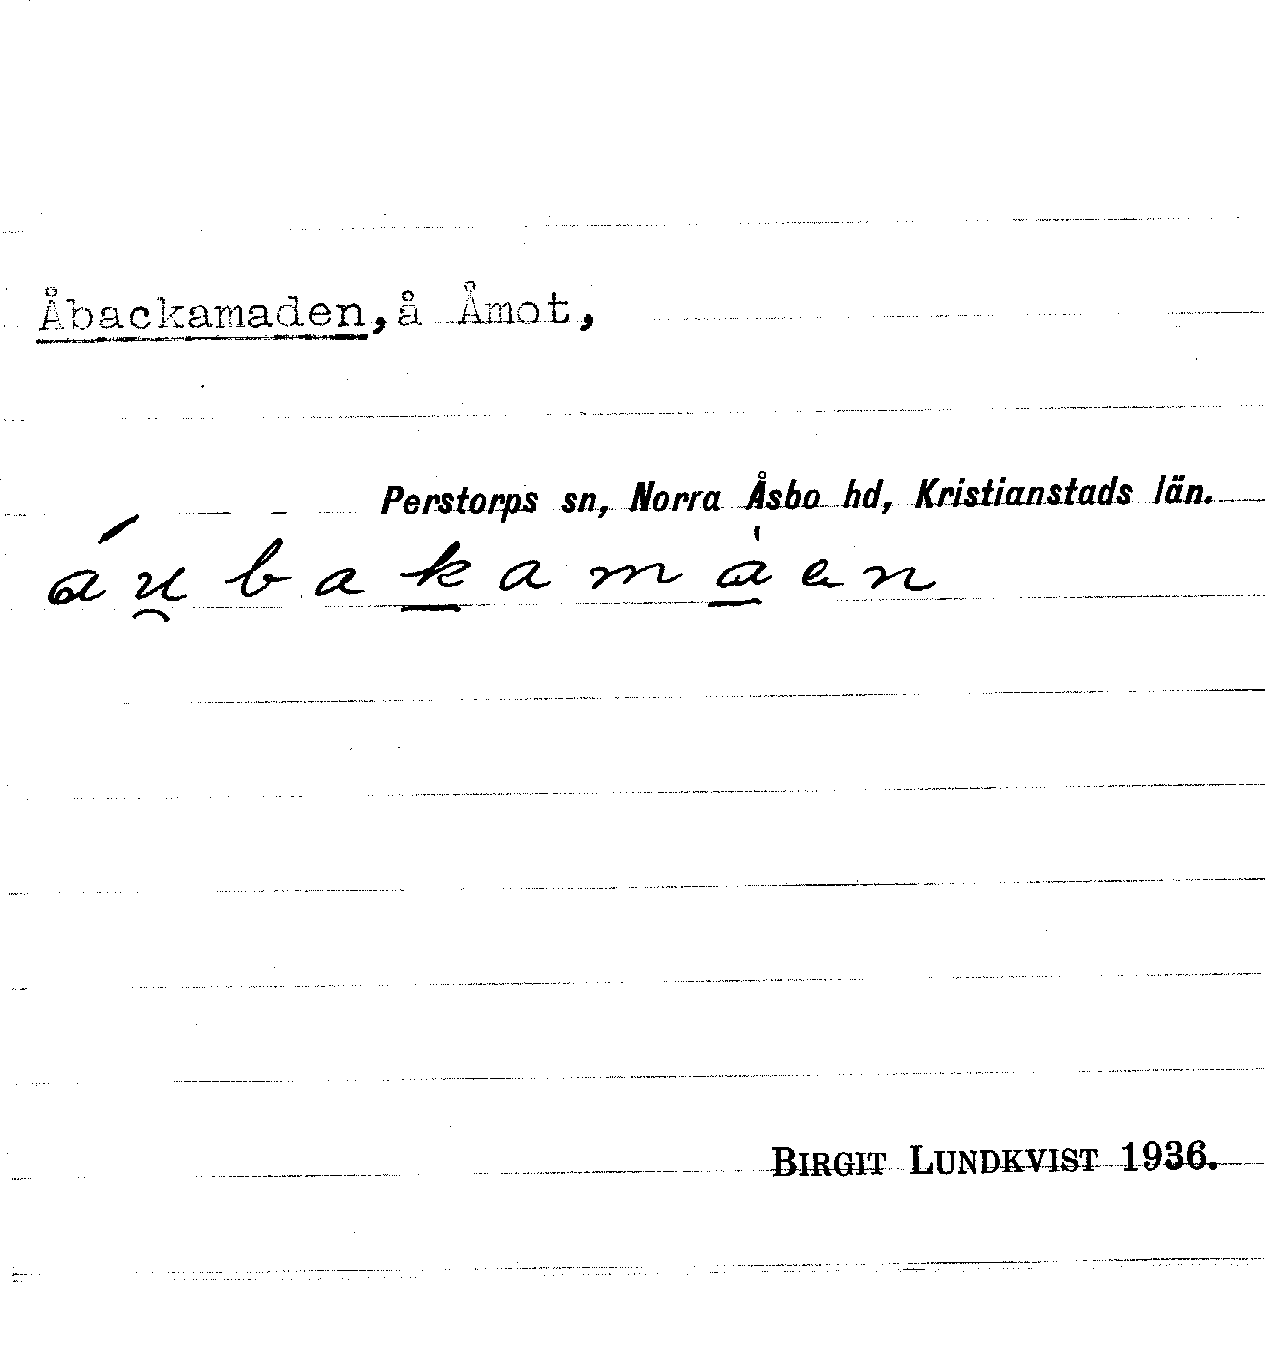 Åbackamaden, å Åmot,
Perstorps sn, Norra Åsbo hd, Kristianstads län.
áu̯bak̲amȧ̲en
BIRGIT LUNDKVIST 1936.